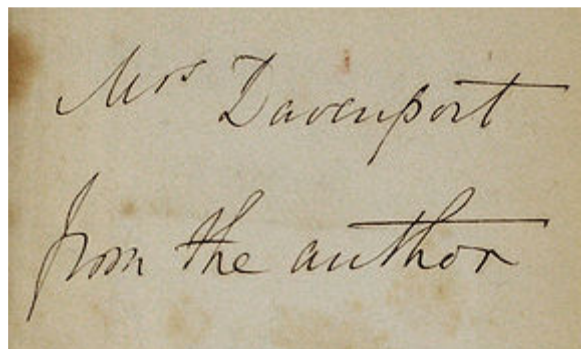 Mrs Davenport
from the author